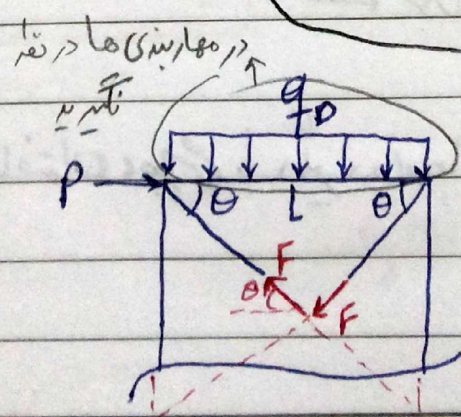 در مهاربندی ها در نظر
نگیرید
q
D
P
θ
L
θ
F
θ
F